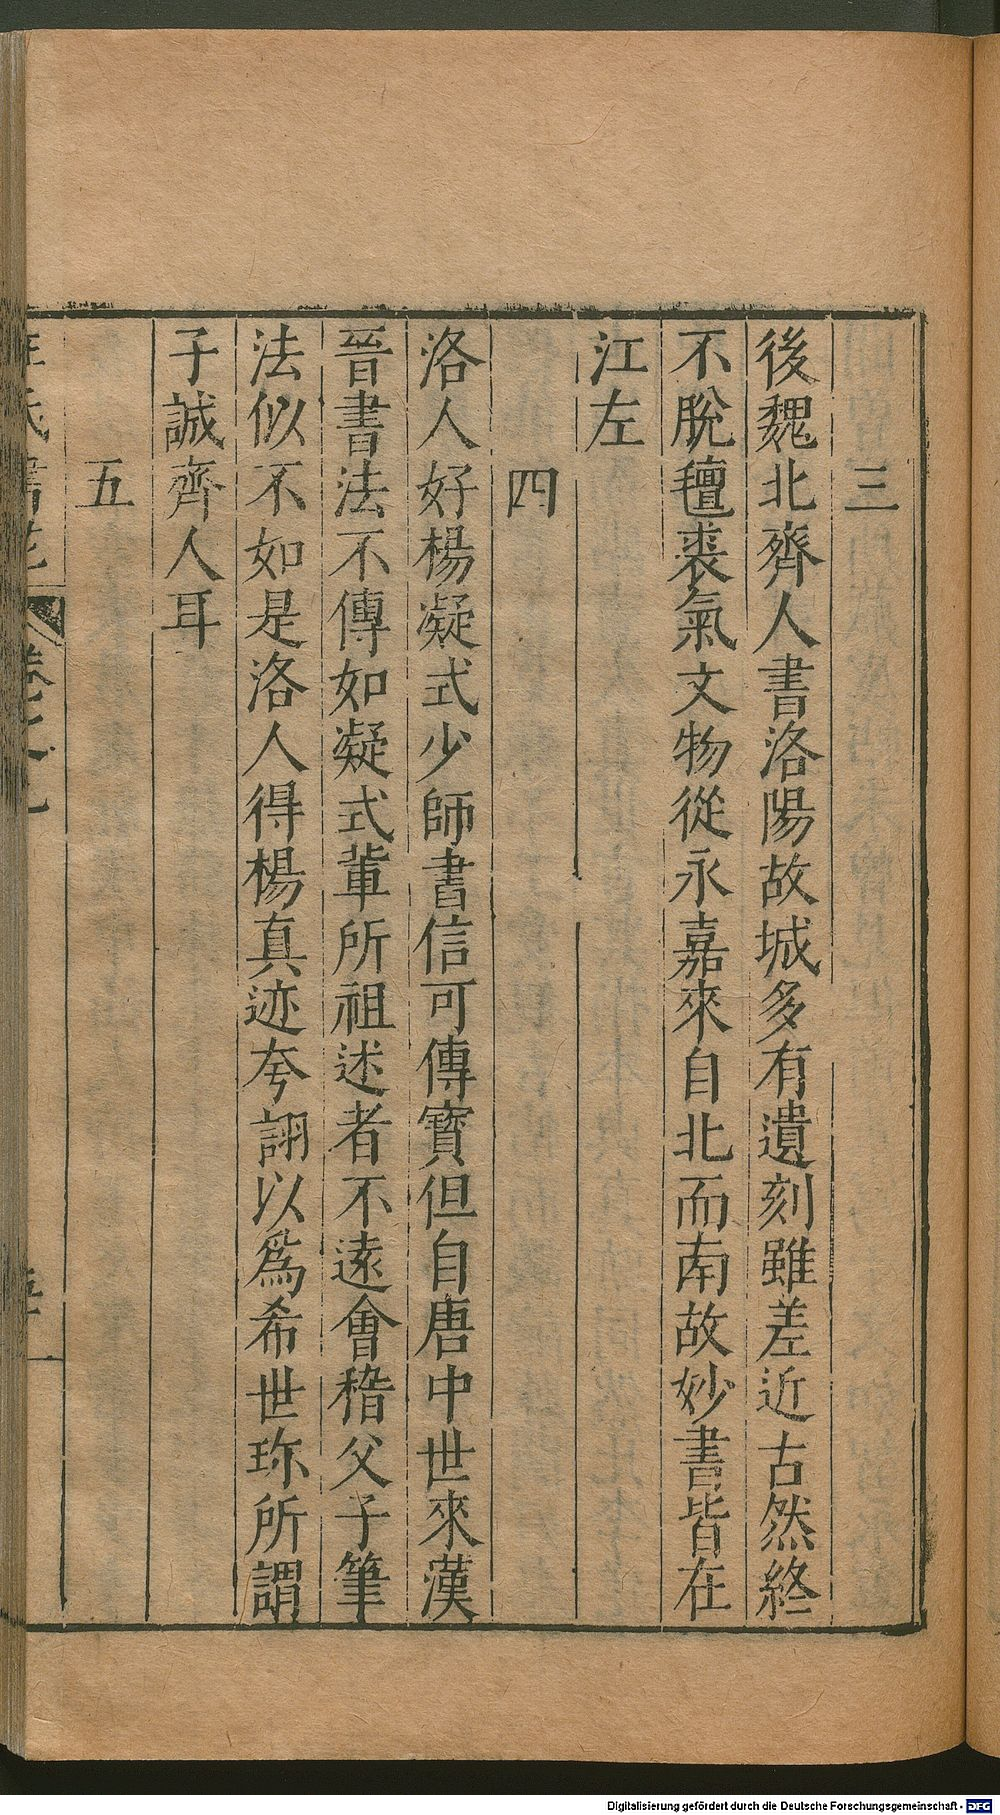 三
後魏北齊人書洛陽故城多有遺刻雖差近古然終
不脫氊裘氣文物從永嘉來自北而南故妙書皆在
江左
四
洛人好楊凝式少師書信可傳寶但自唐中世來漢
晉書法不傳如凝式軰所祖述者不遠會稽父子筆
法似不如是洛人得楊真迹夸詡以爲希世珎所謂
子誠齊人耳
五
氏書苑 卷之
Digitalisierung gefördert durch die Deutsche Forschungsgemeinschaft - DFG